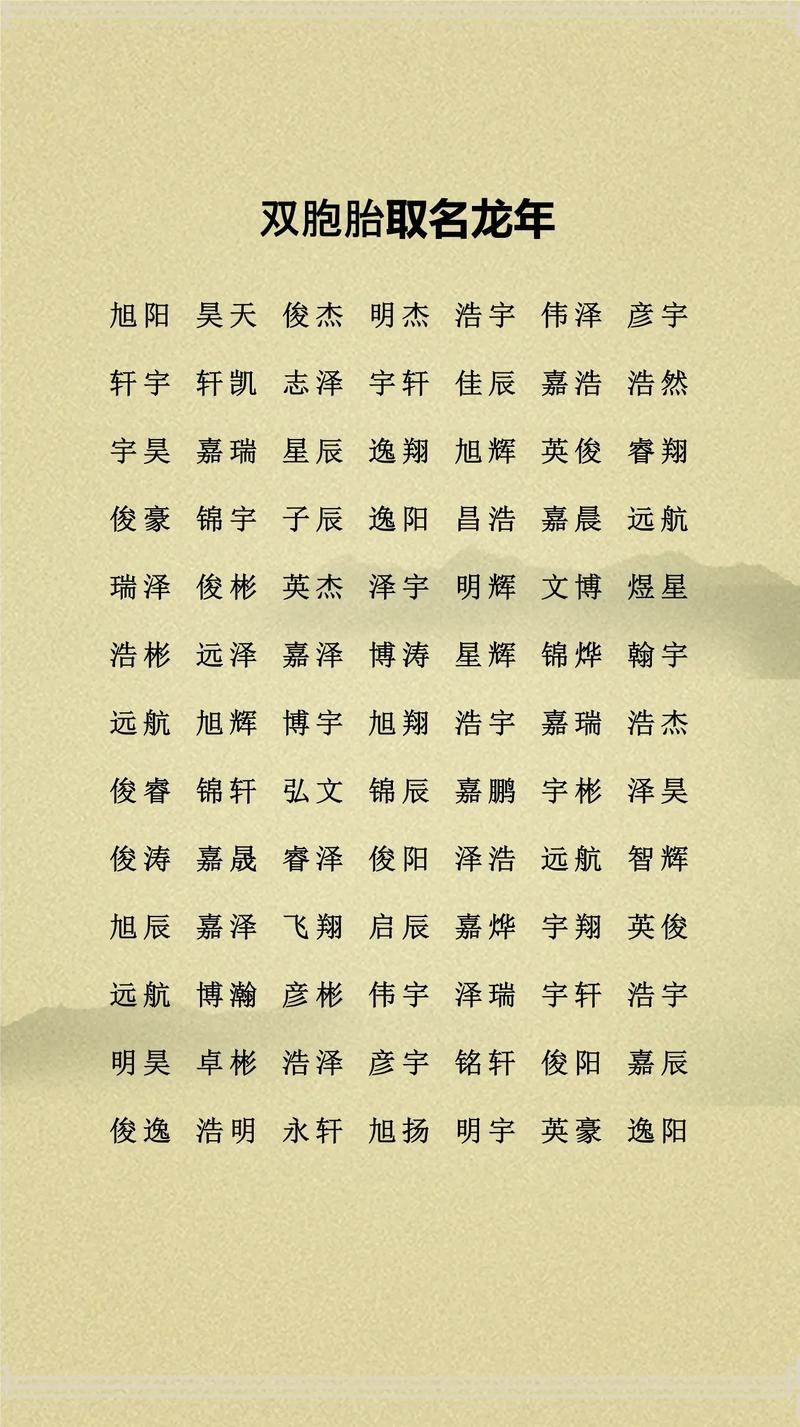 双胞胎取名龙年
旭阳 昊天 俊杰 明杰 浩宇 伟泽 彦宇
轩宇 轩凯 志泽 宇轩 佳辰 嘉浩 浩然
宇昊 嘉瑞 星辰 逸翔 旭辉 英俊 睿翔
俊豪 锦宇 子辰 逸阳 昌浩 嘉晨 远航
瑞泽 俊彬 英杰 泽宇 明辉 文博 煜星
浩彬 远泽 嘉泽 博涛 星辉 锦烨 翰宇
远航 旭辉 博宇 旭翔 浩宇 嘉瑞 浩杰
俊睿 锦轩 弘文 锦辰 嘉鹏 宇彬 泽昊
俊涛 嘉晟 睿泽 俊阳 泽浩 远航 智辉
旭辰 嘉泽 飞翔 启辰 嘉烨 宇翔 英俊
远航 博瀚 彦彬 伟宇 泽瑞 宇轩 浩宇
明昊 卓彬 浩泽 彦宇 铭轩 俊阳 嘉辰
俊逸 浩明 永轩 旭扬 明宇 英豪 逸阳